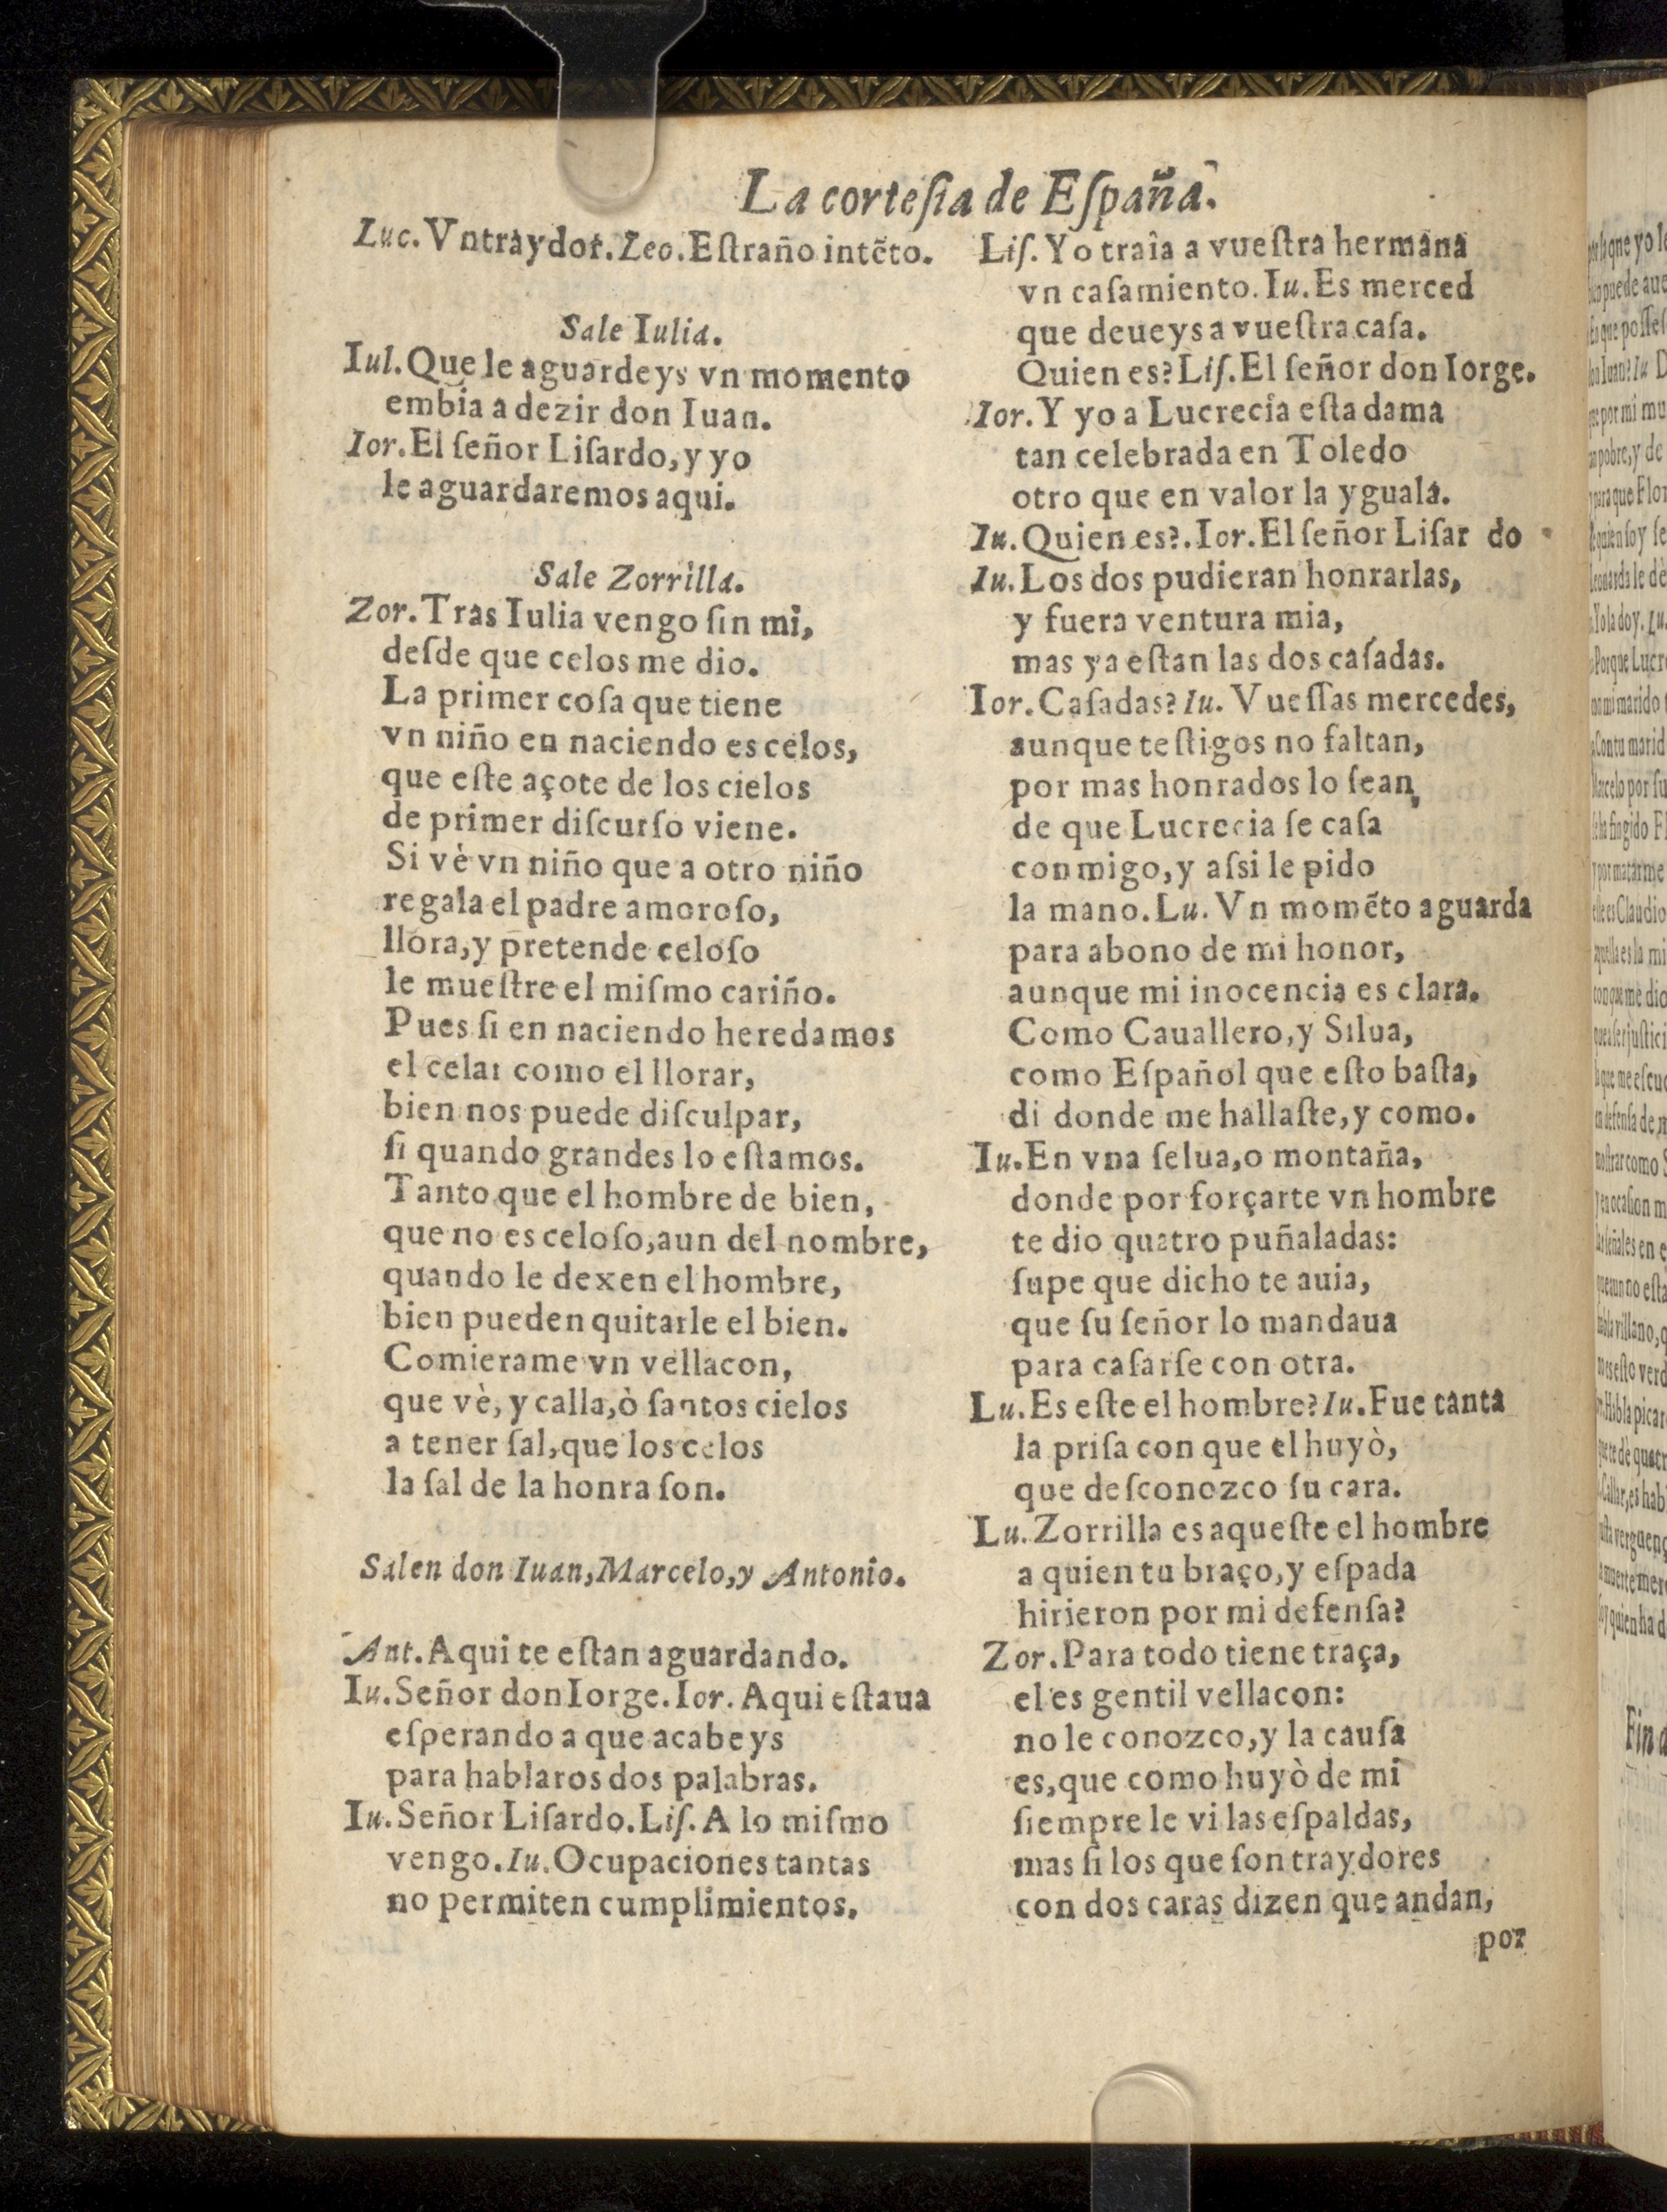 La cortesia de España.
Luc. Vn traydor. Leo. Estraño intẽto.
Sale Iulia.
Iul. Que le aguardeys vn momento
embia a dezir don Iuan.
Ior. El señor Lisardo, y yo
le aguardaremos aqui.
Sale Zorrilla.
Zor. Tras Iulia vengo sin mi,
desde que celos me dio.
La primer cosa que tiene
vn niño en naciendo es celos,
que este açote de los cielos
de primer discurso viene.
Si vè vn niño que a otro niño
regala el padre amoroso,
llora, y pretende celoso
le muestre el mismo cariño.
Pues si en naciendo heredamos
el celar como el llorar,
bien nos puede disculpar,
si quando grandes lo estamos.
Tanto que el hombre de bien,
que no es celoso, aun del nombre,
quando le dexen el hombre,
bien pueden quitarle el bien.
Comierame vn vellacon,
que vè, y calla, ò santos cielos
a tener sal, que los celos
la sal de la honra son.
Salen don Iuan, Marcelo, y Antonio.
Ant. Aqui te estan aguardando.
Iu. Señor don Iorge. Ior. Aqui estaua
esperando a que acabeys
para hablaros dos palabras.
Iu. Señor Lisardo. Lis. A lo mismo
vengo. Iu. Ocupaciones tantas
no permiten cumplimientos.
Lis. Yo traîa a vuestra hermana
vn casamiento. Iu. Es merced
que deueys a vuestra casa.
Quien es? Lis. El señor don Iorge.
Ior. Y yo a Lucrecia esta dama
tan celebrada en Toledo
otro que en valor la yguala.
Iu. Quien es?. Ior. El señor Lisar do
Iu. Los dos pudieran honrarlas,
y fuera ventura mia,
mas ya estan las dos casadas.
Ior. Casadas? Iu. Vuessas mercedes,
aunque testigos no faltan,
por mas honrados lo sean,
de que Lucrecia se casa
conmigo, y assi le pido
la mano. Lu. Vn momẽto aguarda
para abono de mi honor,
aunque mi inocencia es clara.
Como Cauallero, y Silua,
como Español que esto basta,
di donde me hallaste, y como.
Iu. En vna selua, o montaña,
donde por forçarte vn hombre
te dio quatro puñaladas:
supe que dicho te auia,
que su señor lo mandaua
para casarse con otra.
Lu. Es este el hombre? Iu. Fue tanta
la prisa con que el huyò,
que desconozco su cara.
Lu. Zorrilla es aqueste el hombre
a quien tu braço, y espada
hirieron por mi defensa?
Zor. Para todo tiene traça,
el es gentil vellacon:
no le conozco, y la causa
es, que como huyò de mi
siempre le vi las espaldas,
mas si los que son traydores
con dos caras dizen que andan,
por